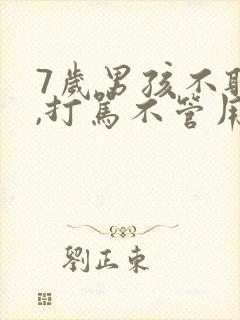 7歲男孩不
,打罵不管
劉正東